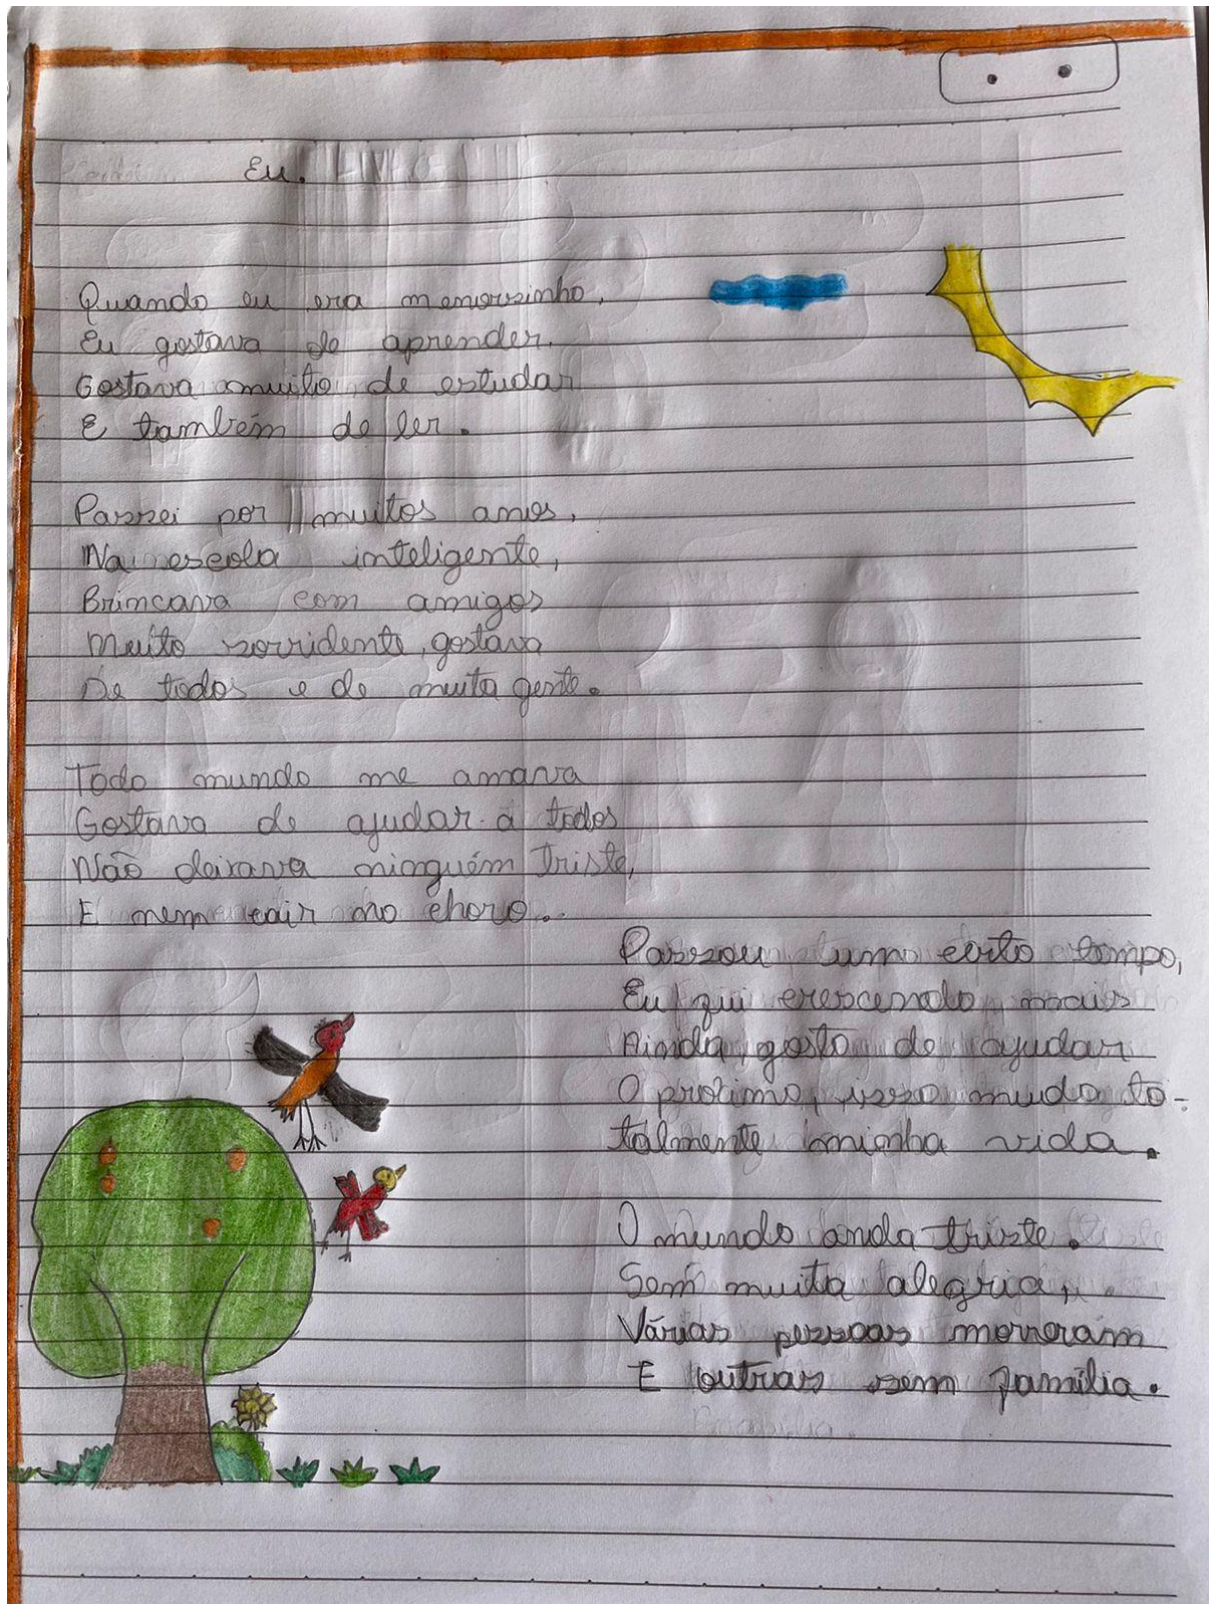 Eu.
Quando eu era menorzinho,
Eu gostava de aprender.
Gostava muito de estudar
E também de ler.
Passei por muitos anos,
Na escola inteligente,
Brincava com amigos
Muito sorridente, gostava
De todos e de muita gente.
Todo mundo me amava
Gostava de ajudar a todos
Não deixava ninguém triste,
E nem cair no choro.
Passou um certo tempo,
Eu fui crescendo mais
Ainda gosto de ajudar
O proximo, isso muda to-
talmente minha vida.
O mundo anda triste.
Sem muita alegria,
Várias pessoas morreram
E outras sem família.